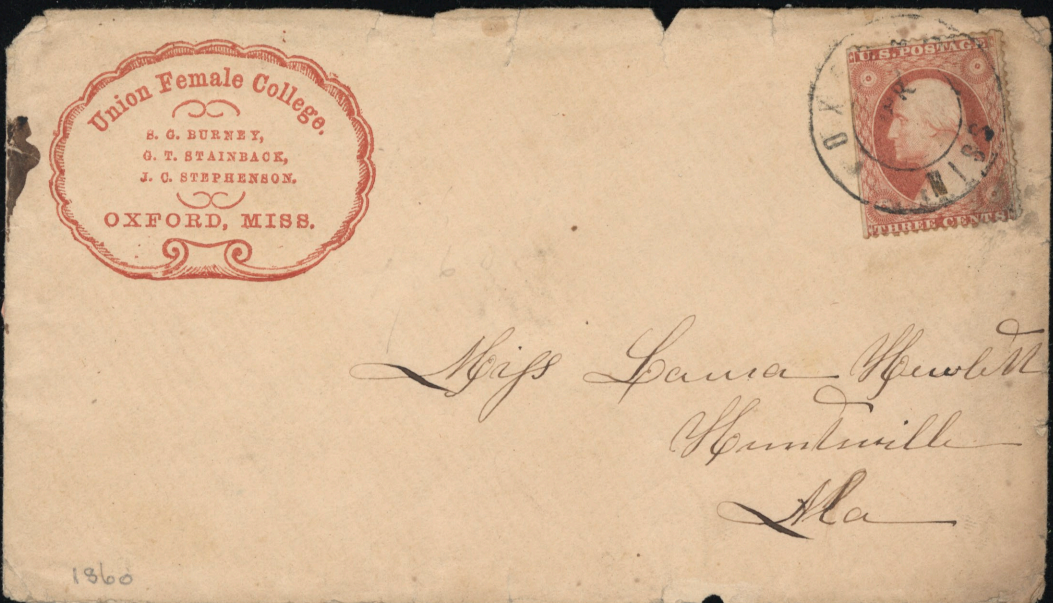 Union Female College,
S. G. BURNEY,
G. T. STAINBACK,
J. C. STEPHENSON.
OXFORD, MISS.
U.S. POSTAGE
THREE CENTS
OX
MISS
Miss Laura Hewlett
Huntsville
Ala
1860